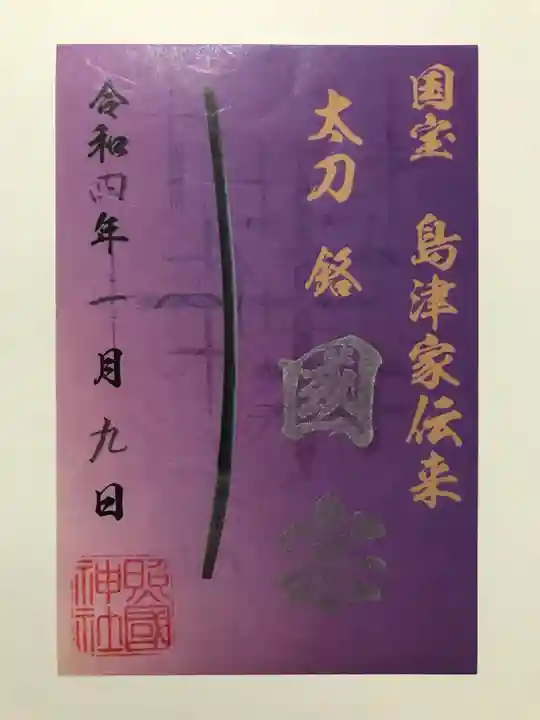 国宝 島津家伝来
太刀 銘
國宗
令和四年一月九日
照國神社